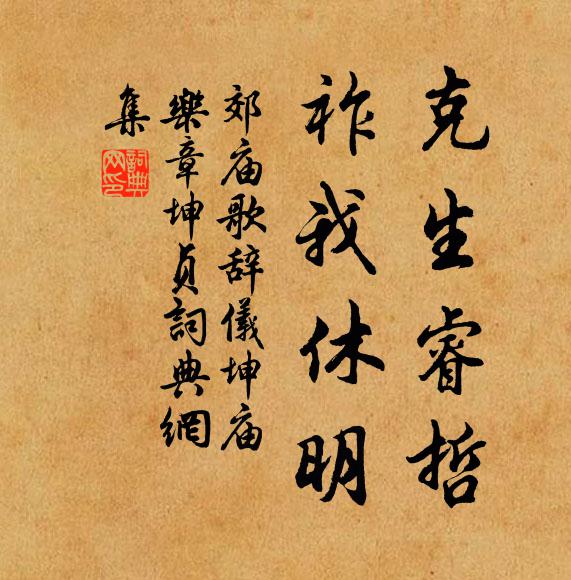 克生睿哲
祚我休明
郊庙歌辞儀坤庙
樂章坤貞詞典網
集
詞典网印